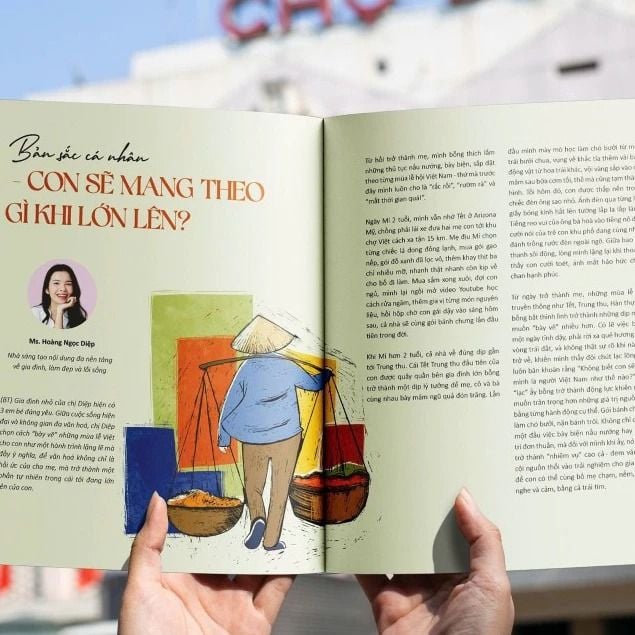 CHỢ
Bản sắc cá nhân
- CON SẼ MANG THEO
GÌ KHI LỚN LÊN?
Ms. Hoàng Ngọc Diệp
Nhà sáng tạo nội dung đa nền tảng
về gia đình, làm đẹp và lối sống
(BT) Gia đình nhỏ của chị Diệp hiện có
3 em bé đáng yêu. Giữa cuộc sống hiện
đại và không gian đa văn hoá, chị Diệp
chọn cách "bày vẽ" những mùa lễ Việt
cho con như một hành trình lặng lẽ mà
đầy ý nghĩa, để văn hoá không chỉ là
hồi ức của cha mẹ, mà trở thành một
phần tự nhiên trong cái tôi đang lớn
lên của con.
Từ hồi trở thành mẹ, mình bỗng thích lắm
những thủ tục nấu nướng, bày biện, sắp đặt
theo từng mùa lễ hội Việt Nam - thứ mà trước
đây mình luôn cho là "rắc rối", "rườm rà" và
"mất thời gian quá!".
Ngày Mỡ 2 tuổi, mình vẫn nhớ Tết ở Arizona
Mỹ, chồng phải lái xe đưa hai mẹ con tới khu
chợ Việt cách xa tận 15 km. Mẹ địu Mỡ chọn
từng chiếc lá dong đông lạnh, mua gói gạo
nếp, gói đỗ xanh đã lọc vỏ, thêm khay thịt ba
chỉ nhiều mỡ, nhanh thật nhanh còn kịp về
cho bố đi làm. Mua sắm xong xuôi, đợi con
ngủ, mình lại ngồi mở video Youtube học
cách rửa ngâm, thêm gia vị từng món nguyên
liệu, hồi hộp chờ con gái dậy vào sáng hôm
sau, cả nhà sẽ cùng gói bánh chưng lần đầu
tiên trong đời.
Khi Mỡ hơn 2 tuổi, cả nhà về đúng dịp gần
tới Trung thu. Cái Tết Trung thu đầu tiên của
con được quây quần bên gia đình lớn bỗng
trở thành một dịp lý tưởng để mẹ, cô và bà
cùng nhau bày mâm ngũ quả đón trăng. Lần
đầu mình mày mò học làm chó bưởi từ
trái bưởi chua, vụng về khắc tỉa thêm vài
động vật từ hoa trái khác, vội vàng sắp vào
mâm sau bữa cơm tối, thế mà cũng tạm thành
hình. Tối hôm đó, con được thắp nến trong
chiếc đèn ông sao nhỏ. Ánh đèn qua từng lớp
giấy bóng kính hắt lên tường lấp la lấp lánh.
Tiếng reo vui của ông bà hoà vào tiếng nô đùa
cười nói của trẻ con khu phố đang cùng nhau
đánh trống rước đèn ngoài ngõ. Giữa bao
thanh sôi động, lòng mình lặng lại khi
thấy con cười toét, ánh mắt háo hức
chan hạnh phúc.
Từ ngày trở thành mẹ, những mùa lễ
truyền thống như Tết, Trung thu, Hàn thực
bỗng bất thình lình trở thành những dịp mình
muốn "bày vẽ" nhiều hơn. Có lẽ việc
một ngày tỉnh dậy, phải rời xa quê hương
vòng trái đất, và không thật sự rõ khi nào
trở về, khiến mình thấy đôi chút lạc lõng
luôn băn khoăn rằng "Không biết con sẽ
mình là người Việt Nam như thế nào?"
"lạc" ấy bỗng trở thành động lực khiến
muốn trân trọng hơn những giá trị nguồn
bằng từng hành động cụ thể. Gói bánh chưng,
làm chó bưởi, nặn bánh trôi. Không chỉ
một đầu việc bày biện nấu nướng hay
trí đơn thuần, mà đối với mình khi ấy,
trở thành "nhiệm vụ" cao cả - đem văn
cội nguồn thổi vào trải nghiệm cho gia
để con có thể cùng bố mẹ chạm, nếm,
nghe và cảm, bằng cả trái tim.